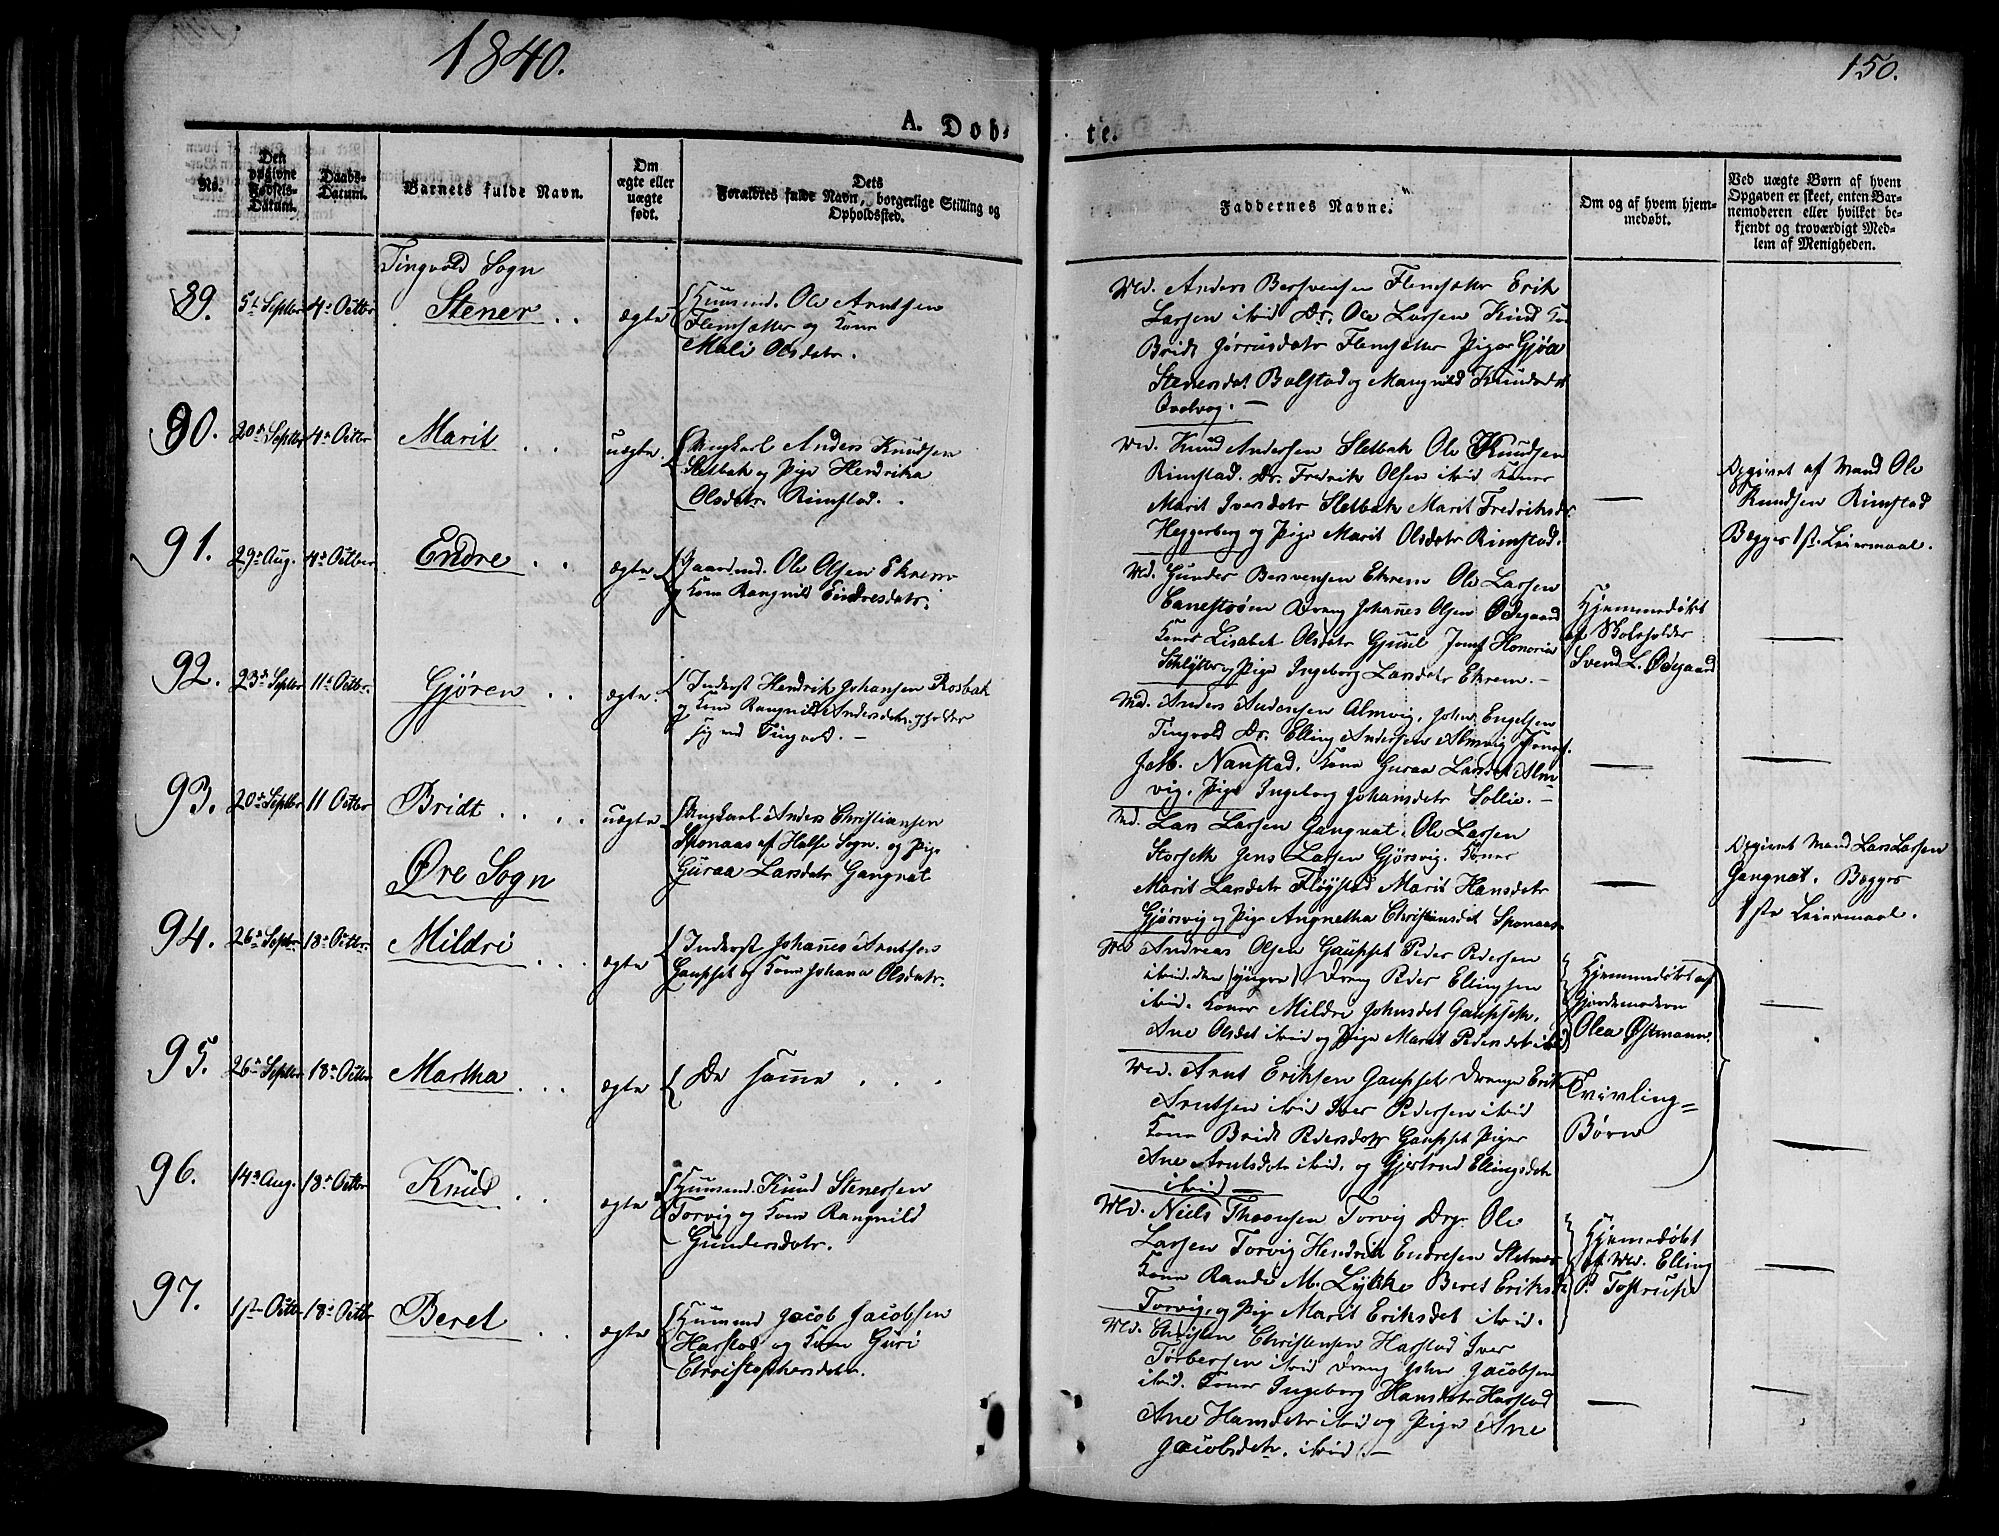 1840.
150.
A. Døb-
te.
No.
Den opgivne Fødsels-Datum.
Daabs-Datum.
Barnets fulde Navn.
Om ægte eller uægte født.
Dets Forældres fulde Navn, borgerlige Stilling og Opholdssted.
Faddernes Navne.
Om og af hvem hjemmedøbt.
Ved uægte Børn af hvem
Opgaven er skeet, enten Bar-
nemoderen eller hvilket be-
kjendt og troværdigt Med-
lem af Menigheden.
Tingvold Sogn
89.
5te Septbr
4de Octbr
Stener
ægte
Huusmd. Ole Arntsen
Flemsætter og Kone
Mali Olsdatr.
Md. Anders Bersvensen Flemsætter Erik
Larsen ibid Dr. Ole Larsen Kind
Bridt Flemsætter Piger Gjøa
Stenersdat Bolstad og Mangnild Knudsdt
90.
20de Septbr
4de Octbr
Marit
uægte
Ungkarl Anders Knudsen
Sletbak og Pige Hendrika
Olsdatr. Rimstad.
Md. Knud Andersen Sletbak Ole Knudsen
Rimstad. Dr. Fredrik Olsen ibid Koner
Marit Iversdatr Sletbak Marit Fredriksdr
Heggerberg og Pige Marit Olsdatr Rimstad.
Opgivet af Mand Ole
Knudsen Rimstad
Begges 1ste Leiermaal.
91.
29de Aug.
4de Octber
Endre
ægte
Gaardmd. Ole Olsen Ekrem
og Kone Rangnild Endresdatr.
Md. Gunder Bersvensen Ekrem Ole Larsen
Canestrøm Dreng Johannes Olsen Ødegaard
Koner Lisabet Olsdatr Gjuul Jomf Honoria
Schlytter og Pige Ingeborg Larsdatr Ekrem.
Hjemmedøbt
af Skoleholder
Svend L. Ødegaard
92.
23de Septbr
11te Octbr.
Gjøren
ægte
Inderst Hendrik Johansen Rosbak
og Kone Rangnild Andersdatr. opholder
sig ved Tingvold.
Md. Anders Andersen Almvig, John Engelsen
Tingvold Dr. Elling Andersen Almvig
J. M. Nanstad. Kone Guraa Larsdat Alm-
vig, Pige Ingeborg Johansdatr Sollie.
93.
20de Septbr
11 Octbr
Bridt
uægte
Ungkarl Anders Christiansen
Sponaas af Halse Sogn. og Pige
Guraa Larsdatr Gangnat
Md. Lars Larsen Gangnat. Ole Larsen
Storseth Jens Larsen Gjørsvig. Koner
Marit Larsdatr Fløystad Marit Hansdatr
Gjørsvig og Pige Angnetha Christiansdat Sponaas
Opgivet Mand Lars Larsen
Gangnat. Begges
1ste Leiermaal.
Øre Sogn
94.
26de Septbr
18de Octbr.
Mildri
ægte
Inderst Johannes Arntsen
Gaupset og Kone Johana Olsdatr.
Md Andreas Olsen Gaupset Peder Pedersen
ibid. den (yngre) Dreng Peder Ellingsen
ibid. Koner Mildri Johnsdat Gaupseth,
Ane Olsdat ibid og Pige Marit Pedersdat ibid
Hjemmedøbt af
Gjordemoderen
Olea Østmann.
95.
26de Septbr
18de Octbr
Martha
ægte
De samme
Md. Arnt Eriksen Gaupset Drenge Erik
Arntsen ibid Iver Pedersen ibid
Kone Bridt Pedersdatr Gaupset Piger
Ane Arntsdatr ibid. og Gjertrud Ellingsdatr
ibid
Tvivling-
Børn
96.
14de Aug.
18de Octbr
Knud
ægte
Huusmd. Knud Stenersen
Torvig og Kone Rangnild
Gundersdatr.
Md. Niels Thoresen Torvig Drg. Ole
Larsen Torvig Hendrik Endresen
Kone Randi M. Lykke Beret Eriksdr
Torvig, og Pige Marit Eriksdat ibid.
Hjemmedøbt
af Md. Elling
P. Tostrup
97.
1ste Octbr.
18de Octbr
Beret
ægte
Huusmd Jacob Jacobsen
Harstad og Kone Guri
Christophersdatr.
Md. Christen Christensen Harstad Iver
Torbersen ibid Dreng John Jacobsen
ibid. Koner Ingeborg Hansdatr Harstad
Ane Hansdatr ibid og Pige Ane
Jacobsdatr. ibid.